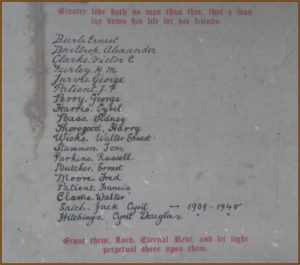 Greater love hath no man than this, that a man
lay down his life for his friends.
Burls Ernest
Barltrop, Alexander
Clarke, Victor C.
Gurley, H. M.
Jarvis, George
Patient, J. P.
Perry, George
Harris, Cyril
Bass, Sidney
Thorogood, Harry
Wicks, Walter Ernest
Stammers, Tom
Parkins, Russell
Butcher, Ernest
Moore, Fred
Patient, Francis
Clarke, Walter
Salch, Jack Cyril — 1939-1945
Hitchings, Cyril Douglas " "
Grant them, Lord, Eternal Rest, and let light
perpetual shine upon them.